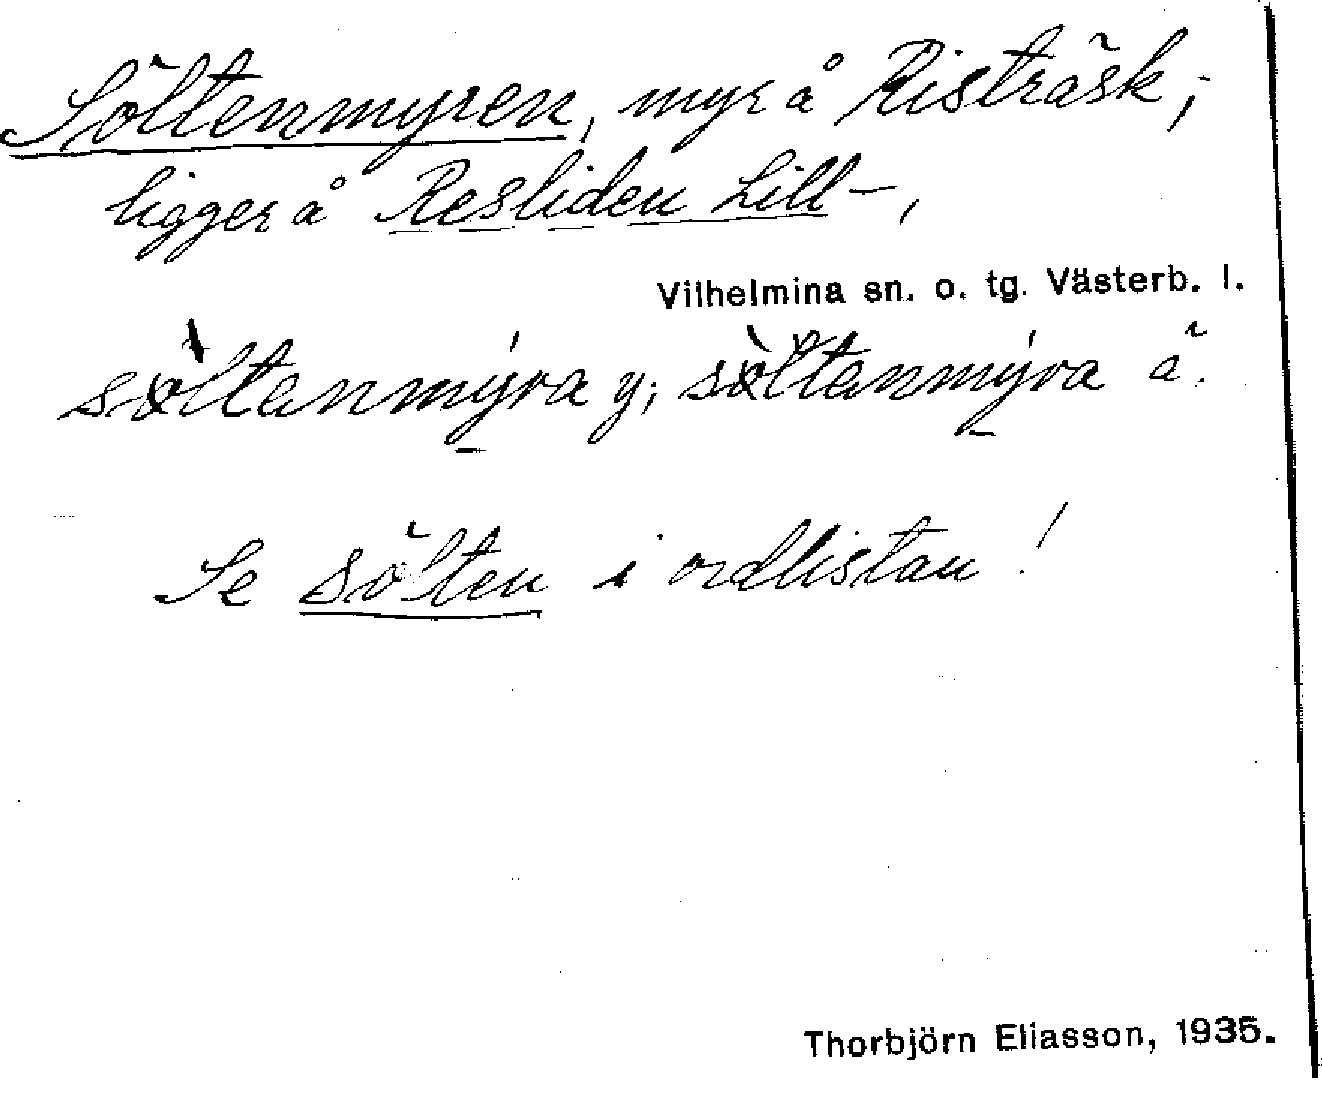 Söltenmyren, myr å Risträsk;
ligger å Resliden Lill-,
Vilhelmina sn. o. tg. Västerb. l.
sö̀ltenmýra y; sö̀ltenmýra ä.
Se sölten i ordlistan!
Thorbjörn Eliasson, 1935.